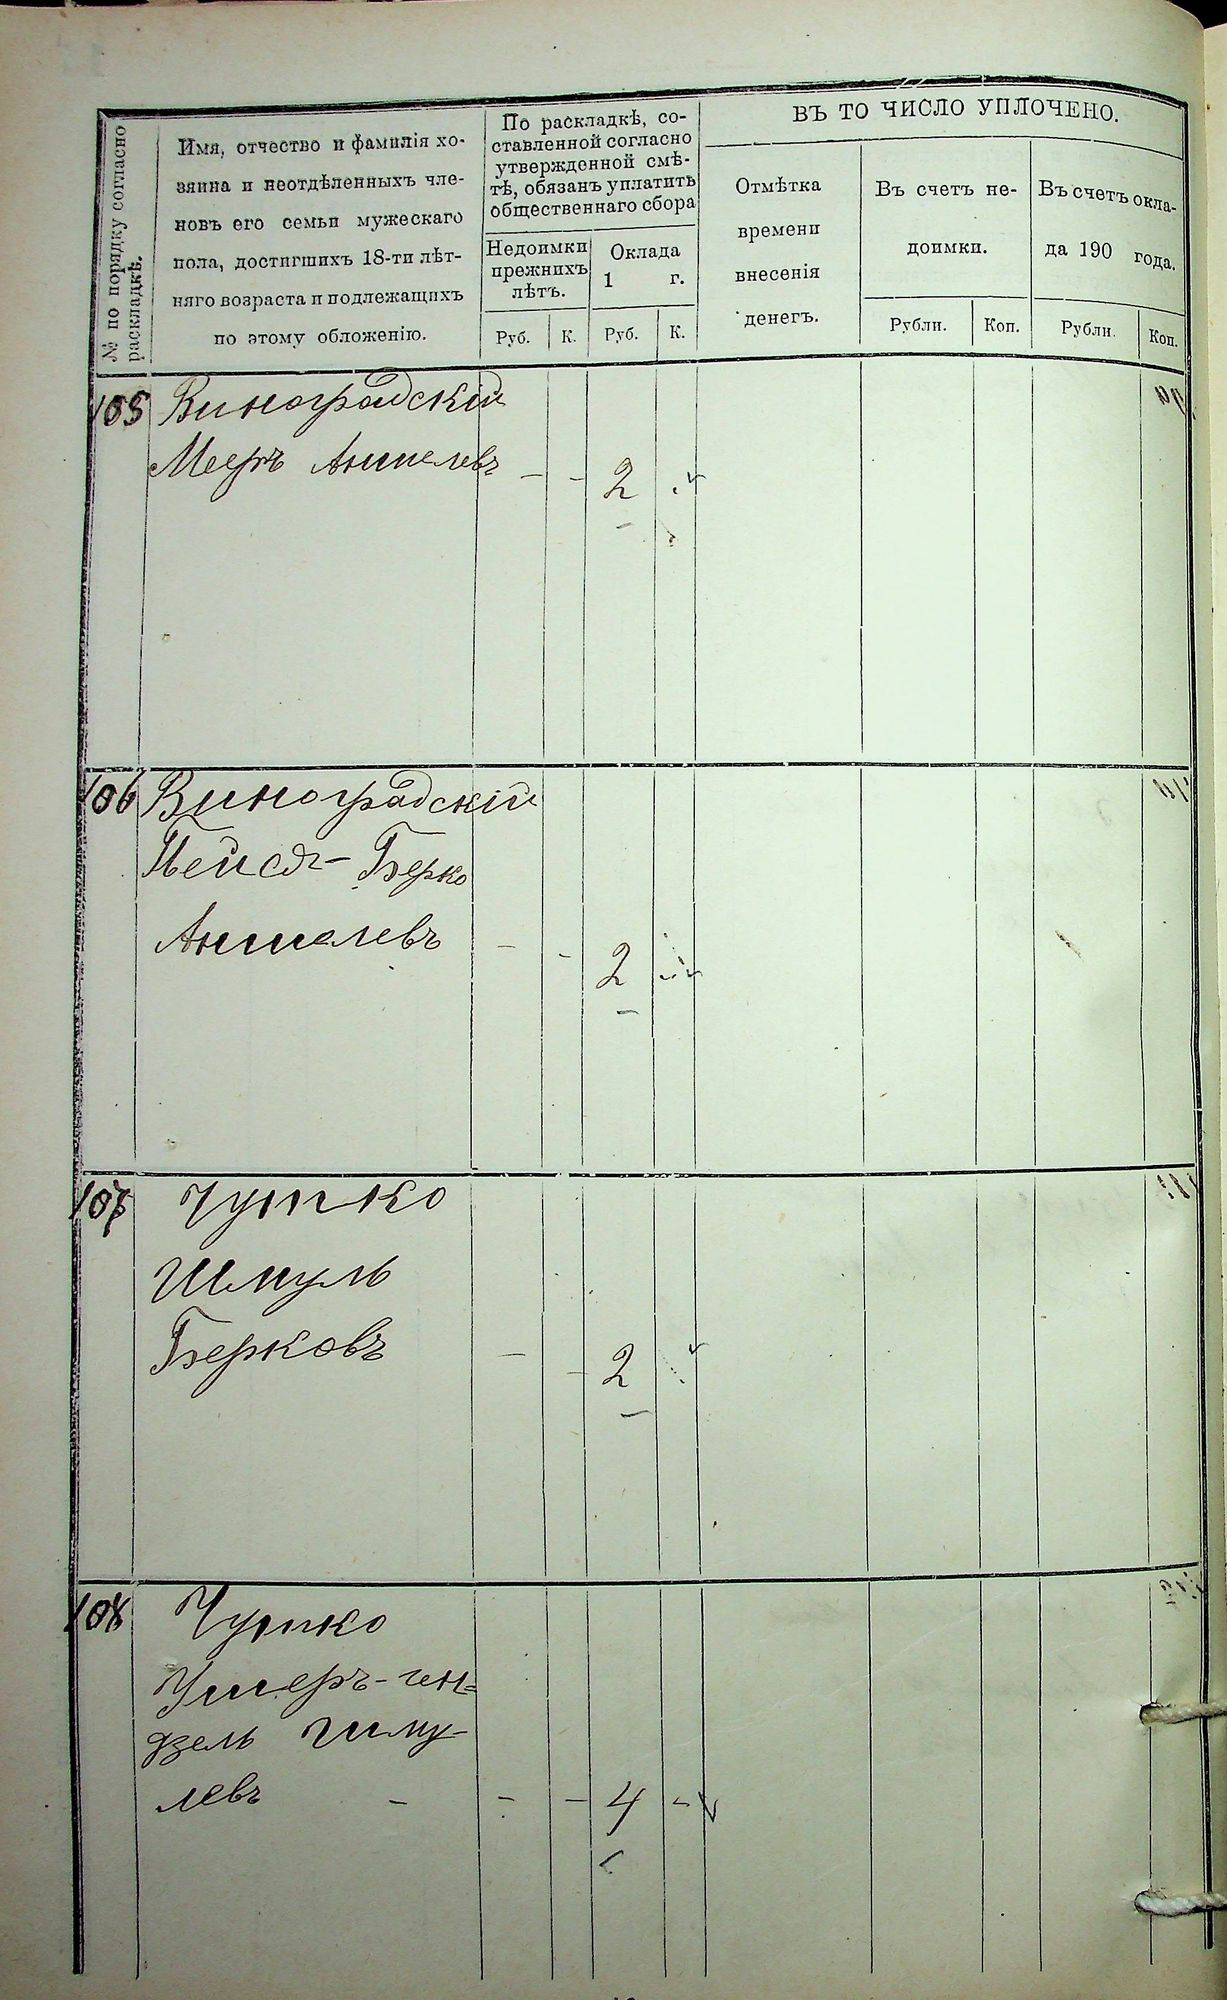 № по порядку согласно
раскладкѣ.
Имя, отчество и фамилія хо-
зяина и неотдѣленныхъ чле-
новъ его семьи мужескаго
пола, достигшихъ 18-ти лѣт-
няго возраста и подлежащихъ
по этому обложенію.
По раскладкѣ, со-
ставленной согласно
утвержденной смѣ-
тѣ, обязанъ уплатить
общественнаго сбора
Недоимки
прежнихъ
лѣтъ.
Оклада
1 г.
Руб. К. Руб. К.
ВЪ ТО ЧИСЛО УПЛОЧЕНО.
Отмѣтка
времени
внесенія
денегъ.
Въ счетъ не-
доимки.
Въ счетъ окла-
да 190 года.
Рубли. Коп. Рубли. Коп.
105 Виноградскій
Мееръ Аншелевъ - - 2
106 Виноградскій
Пейся- Берко
Аншелевъ - - 2
107 Чупко
Шмуль
Берковъ - - 2
108 Чупко
Ушеръ-ген-
дзель Шму-
левъ - - - 4 -